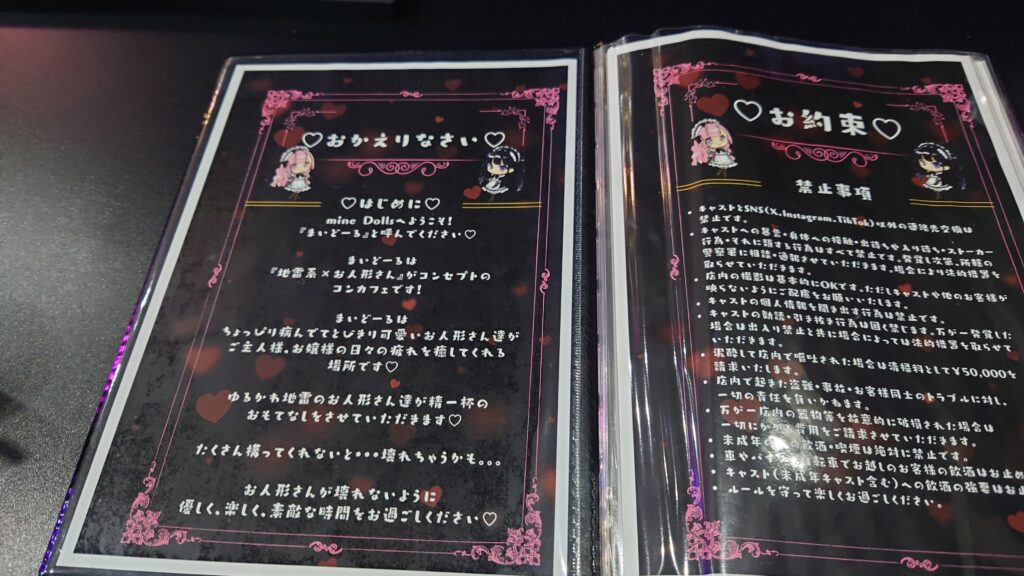 ♡おかえりなさい♡
♡はじめに♡
mine Dollsへようこそ!
『まいどーる』と呼んでください♡
まいどーるは
『地雷系×お人形さん』がコンセプトの
コンカフェです!
まいどーるは
ちょっぴり病んでてとびきり可愛いお人形さん達が
ご主人様、お嬢様の日々の疲れを癒してくれる
場所です♡
ゆるかわ地雷のお人形さん達が精一杯の
おもてなしをさせていただきます♡
たくさん構ってくれないと・・・壊れちゃうかも。。。
お人形さんが壊れないように
優しく、楽しく、素敵な時間をお過ごしください♡
♡お約束♡
禁止事項
• キャストとSNS(X.Instagram.TikTok)以外の連絡先交換は
禁止です。
• キャストへの暴言・身体への接触・出待ちや入り待ち・ストーカー
行為・それに類する行為はすべて禁止です。発覚し次第、所轄の
警察署に相談・通報させていただきます。場合により法的措置を
取らせていただきます。
• 店内の撮影は基本的にOKです。ただしキャストや他のお客様が
映らないようにご配慮をお願いいたします。
• キャストの個人情報を聞き出す行為は禁止です。
• キャストの勧誘・引き抜き行為は固く禁じます。万が一発覚した
場合は出入り禁止と共に場合によっては法的措置を取らせて
いただきます。
• 泥酔して店内で嘔吐された場合は清掃料として¥50,000を
請求いたします。
• 店内で起きた盗難・事故・お客様同士のトラブルに対し、
一切の責任を負いかねます。
• 万が一店内の器物等を故意的に破損された場合は
一切にかかる費用をご請求させていただきます。
• 未成年の 飲酒・喫煙は絶対に禁止です。
• 車やバ 転車でお越しのお客様の飲酒はお止め
• キャスト(未成年キャスト含む)への飲酒の強要はお止
• ルールを守って楽しくお過ごしください。